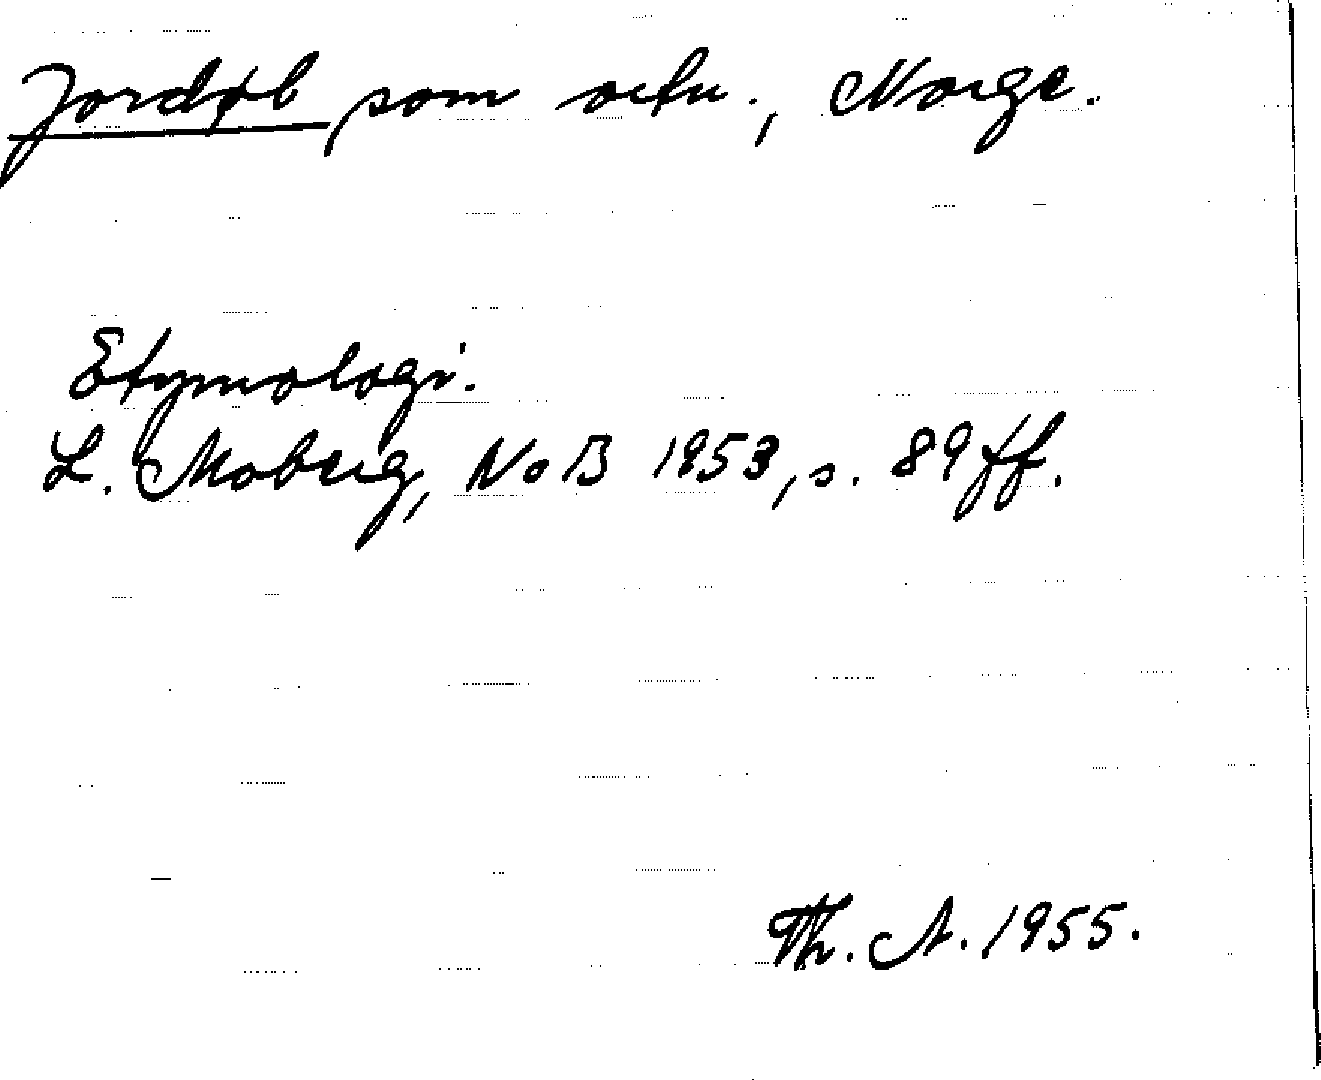 Jordøl som ortn., Norge.
Etymologi.
L. Moberg, NoB 1953, s. 89 ff.
Th. A. 1955.